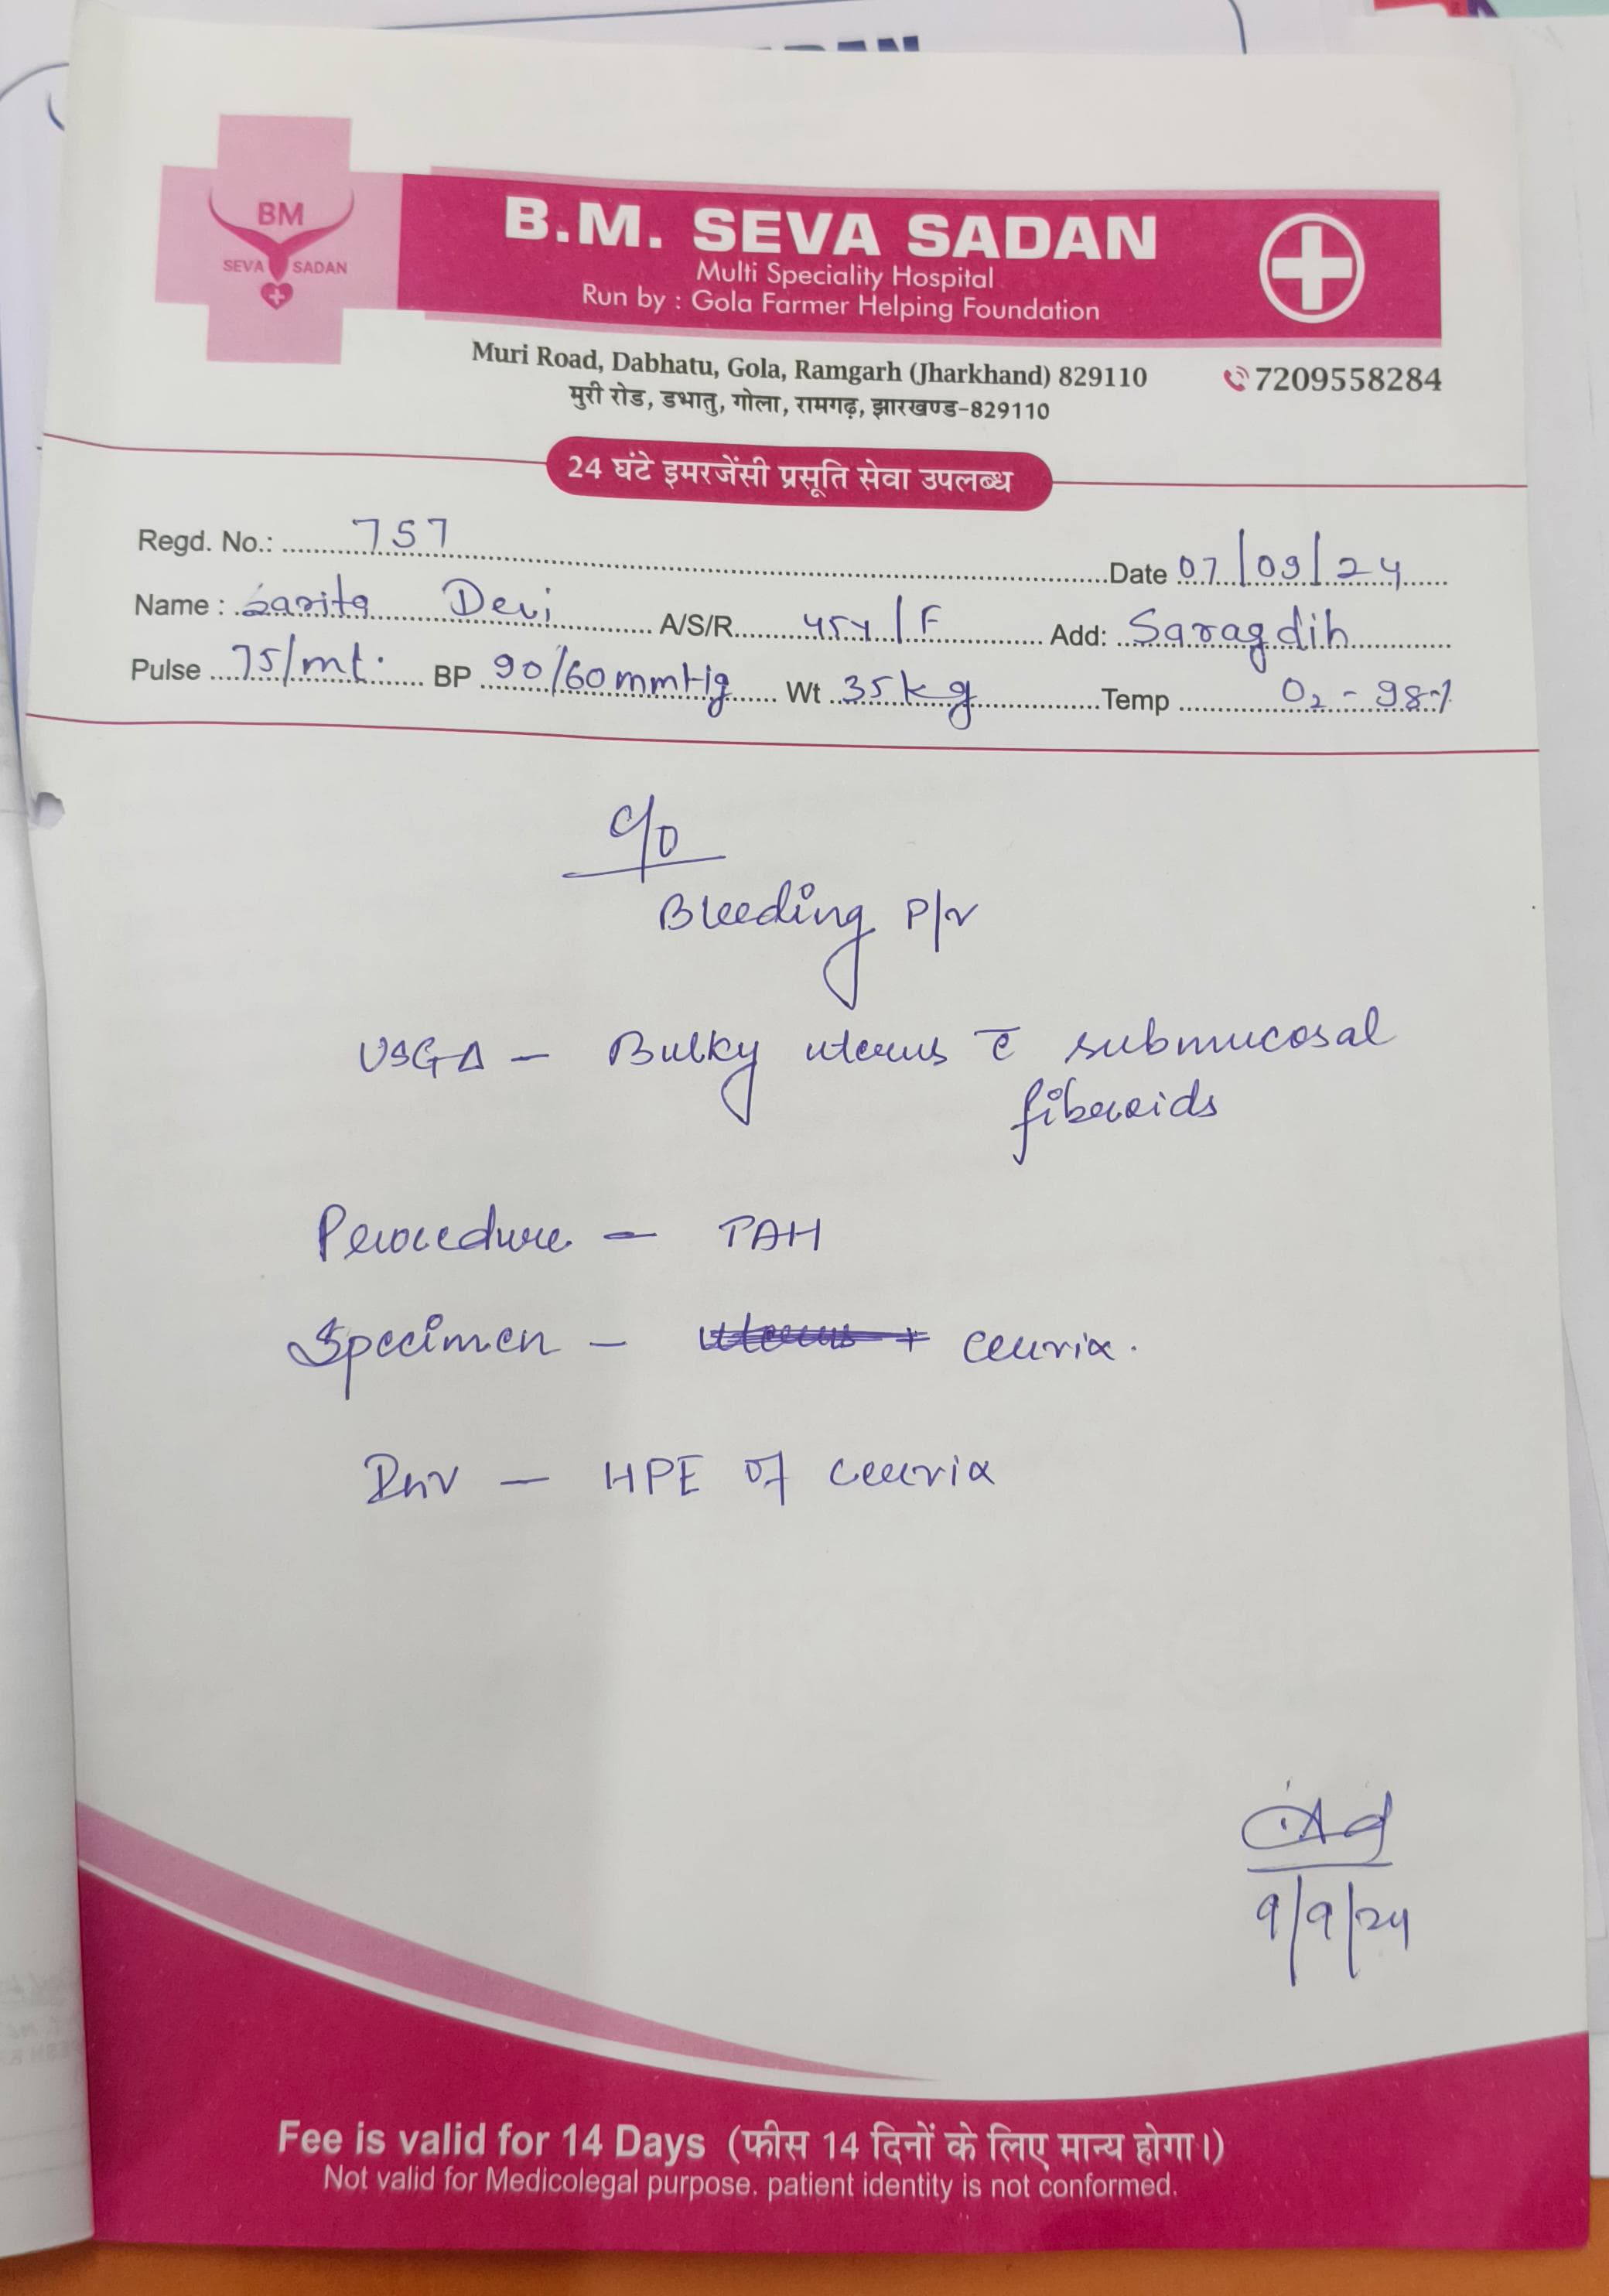 BM
SEVA SADAN
B.M. SEVA SADAN
Multi Speciality Hospital
Run by : Gola Farmer Helping Foundation
Muri Road, Dabhatu, Gola, Ramgarh (Jharkhand) 829110
7209558284
मुरी रोड, डभातु, गोला, रामगढ़, झारखण्ड-829110
24 घंटे इमरजेंसी प्रसूति सेवा उपलब्ध
Regd. No.: 757 Date 07/09/24
Name : Sarita Devi A/S/R 45y/F Add: Saragdih
Pulse 75/mt. BP 90/60mmHg Wt 35kg Temp O2 - 98%
C/O
Bleeding P/V
USG Δ - Bulky uterus c̄ submucosal
fibroids
Procedure - TAH
Specimen - uterus + cervix.
Inv - HPE of cervix
9/9/24
Fee is valid for 14 Days (फीस 14 दिनों के लिए मान्य होगा।)
Not valid for Medicolegal purpose. patient identity is not conformed.